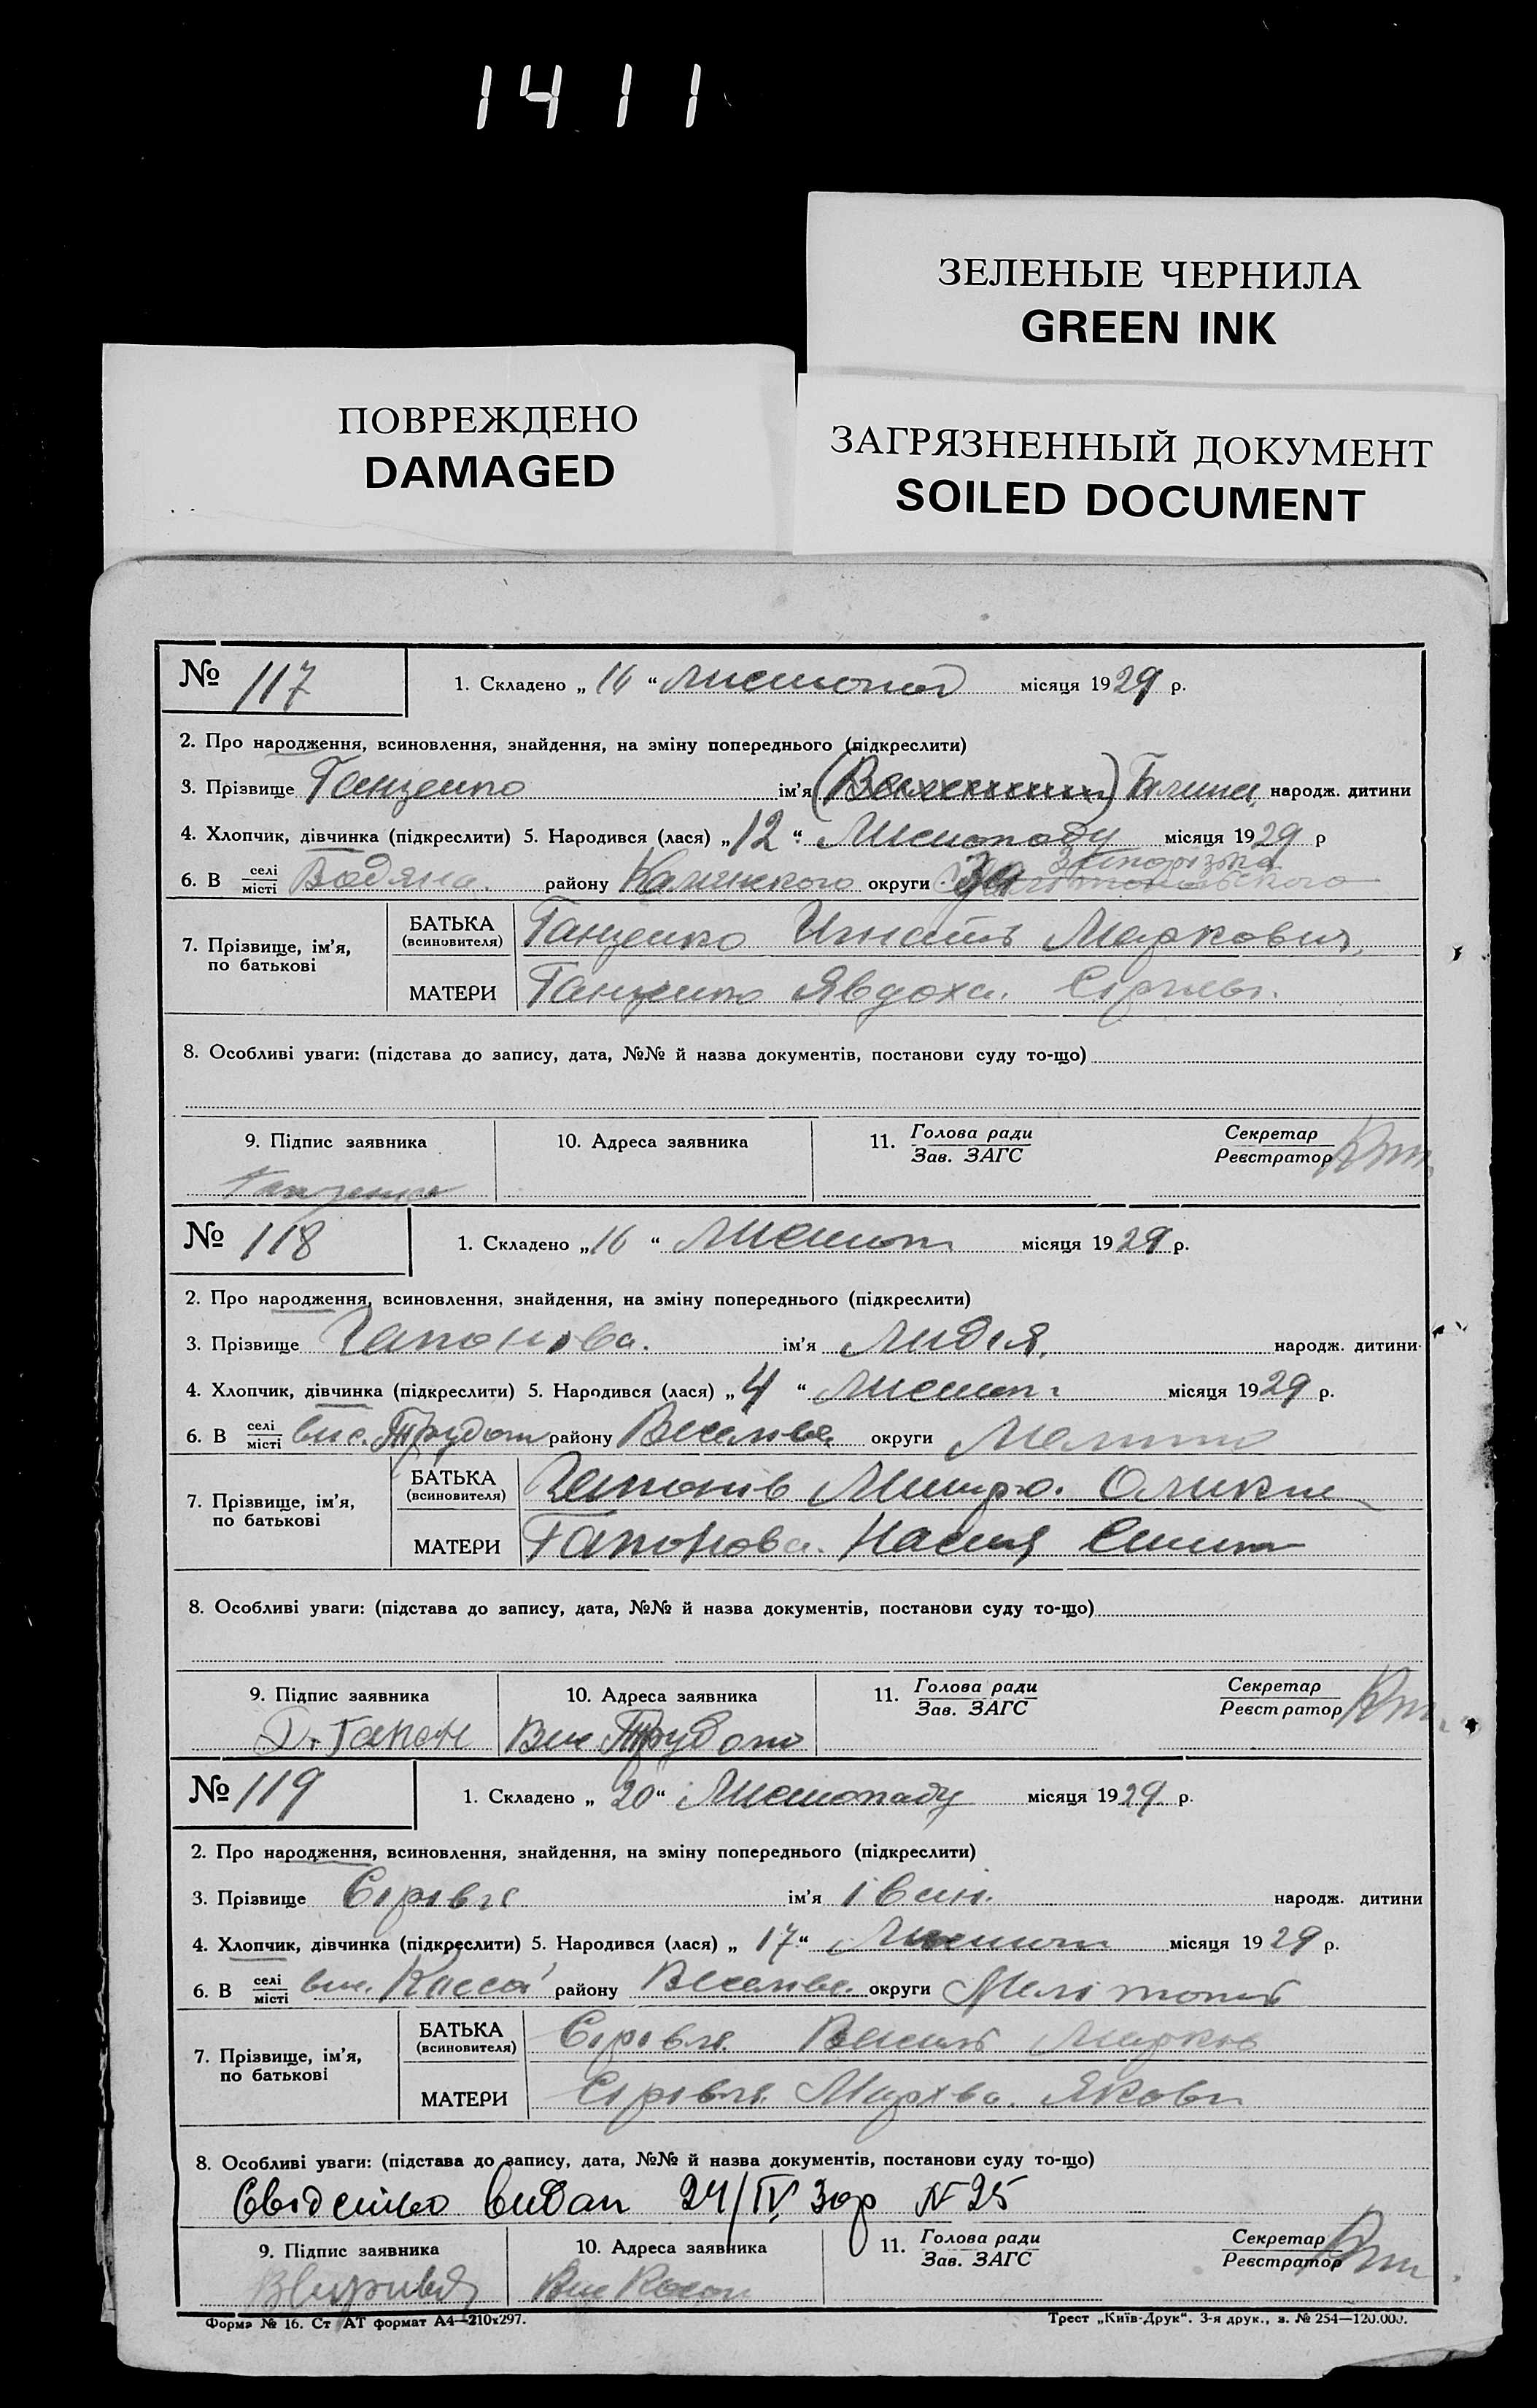 1411
ЗЕЛЕНЫЕ ЧЕРНИЛА
GREEN INK
ПОВРЕЖДЕНО
DAMAGED
ЗАГРЯЗНЕННЫЙ ДОКУМЕНТ
SOILED DOCUMENT
№ 117
1. Складено „16“ листопад місяця 1929 р.
2. Про народження, всиновлення, знайдення, на зміну попереднього (підкреслити)
3. Прізвище Ганзенко ім'я народж. дитини
4. Хлопчик, дівчинка (підкреслити) 5. Народився (лася) „12“ Листопаду місяця 1929 р
6. В селі місті Водяна району округи Запорізька
7. Прізвище, ім'я, по батькові
БАТЬКА (всиновителя) Ганзенко Игнать Маркович
МАТЕРИ Ганзенко Явдоха
8. Особливі уваги: (підстава до запису, дата, №№ й назва документів, постанови суду то-що)
9. Підпис заявника
10. Адреса заявника
11. Голова ради Зав. ЗАГС
Секретар Реєстратор
Ганзенко
№ 118
1. Складено „16“ Листоп місяця 1929 р.
2. Про народження, всиновлення, знайдення, на зміну попереднього (підкреслити)
3. Прізвище Гапонова. ім'я Лидія. народж. дитини
4. Хлопчик, дівчинка (підкреслити) 5. Народився (лася) „4“ Листоп. місяця 1929 р.
6. В селі місті вис. Трудот району Веселів. округи Мелито
7. Прізвище, ім'я, по батькові
БАТЬКА (всиновителя) Гапонів Митро. Олекс
МАТЕРИ Гапонова. Настя
8. Особливі уваги: (підстава до запису, дата, №№ й назва документів, постанови суду то-що)
9. Підпис заявника
10. Адреса заявника
11. Голова ради Зав. ЗАГС
Секретар Реєстратор
Д. Гапон
Вис Трудот
№ 119
1. Складено „20“ Листопаду місяця 1929 р.
2. Про народження, всиновлення, знайдення, на зміну попереднього (підкреслити)
3. Прізвище Сірівля ім'я Іван. народж. дитини
4. Хлопчик, дівчинка (підкреслити) 5. Народився (лася) „17“ Листоп місяця 1929 р.
6. В селі місті вис. району Веселів. округи Мелітопіль
7. Прізвище, ім'я, по батькові
БАТЬКА (всиновителя) Сірівля Василь Марков
МАТЕРИ Сірівля Мархва. Якови
8. Особливі уваги: (підстава до запису, дата, №№ й назва документів, постанови суду то-що)
Свідество видан 24/IV. 30р N 25
9. Підпис заявника
10. Адреса заявника
11. Голова ради Зав. ЗАГС
Секретар Реєстратор
Форма № 16. Ст АТ формат А4—210х297.
Трест „Київ-Друк“. 3-я друк., з. № 254—120.000.